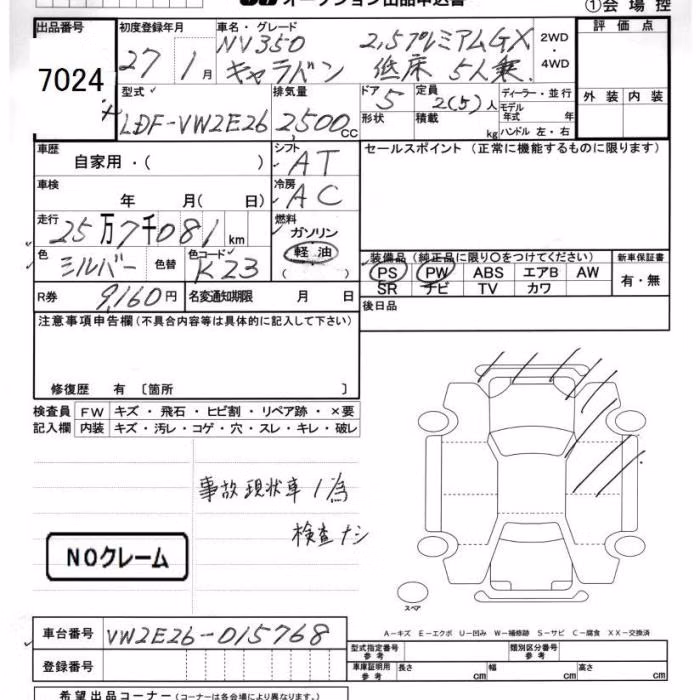 オークション出品申込書
①会場控
出品番号
7024
初度登録年月
27年1月
車名・グレード
NV350 2,5プレミアムGX
キャラバン 低床 5人乗
2WD
・
4WD
評価点
外装 内装
型式
LDF-VW2E26
排気量
2,500cc
ドア
5
形状
定員
2(5)人
積載 kg
ディーラー・並行
モデル年式 年
ハンドル 左・右
車歴
自家用・( )
シフト
AT
セールスポイント (正常に機能するものに限ります)
車検
年 月( 日)
冷房
AC
走行
25万7千081km
燃料
ガソリン
軽油
( )
色
シルバー
色替
色コード
K23
装備品 (純正品に限り〇をつけてください)
PS PW ABS エアB AW
SR ナビ TV カワ
新車保証書
有・無
R券 9,160円
名変通知期限 月 日
後日品
注意事項申告欄 (不具合内容等は具体的に記入して下さい)
修復歴 有 〔箇所 〕
検査員 FW キズ・飛石・ヒビ割・リペア跡・×要
記入欄 内装 キズ・汚レ・コゲ・穴・スレ・キレ・破レ
事故現状車ノ為
検査ナシ
NOクレーム
スペア
車台番号 VW2E26-015768
登録番号
A－キズ E－エクボ U－凹み W－補修跡 S－サビ C－腐食 XX－交換済
型式指定番号
参考
類別区分番号
参考
車庫証明用
参考
長さ cm 幅 cm 高さ cm
希望出品コーナー (コーナーは各会場により異なります)